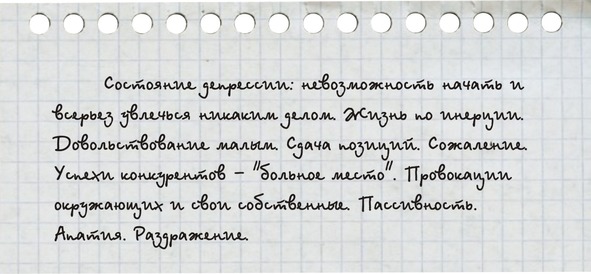 Состояние депрессии: невозможность начать и
всерьез увлечься никаким делом. Жизнь по инерции.
Довольствование малым. Сдача позиций. Сожаление.
Успехи конкурентов – "больное место". Провокации
окружающих и свои собственные. Пассивность.
Апатия. Раздражение.